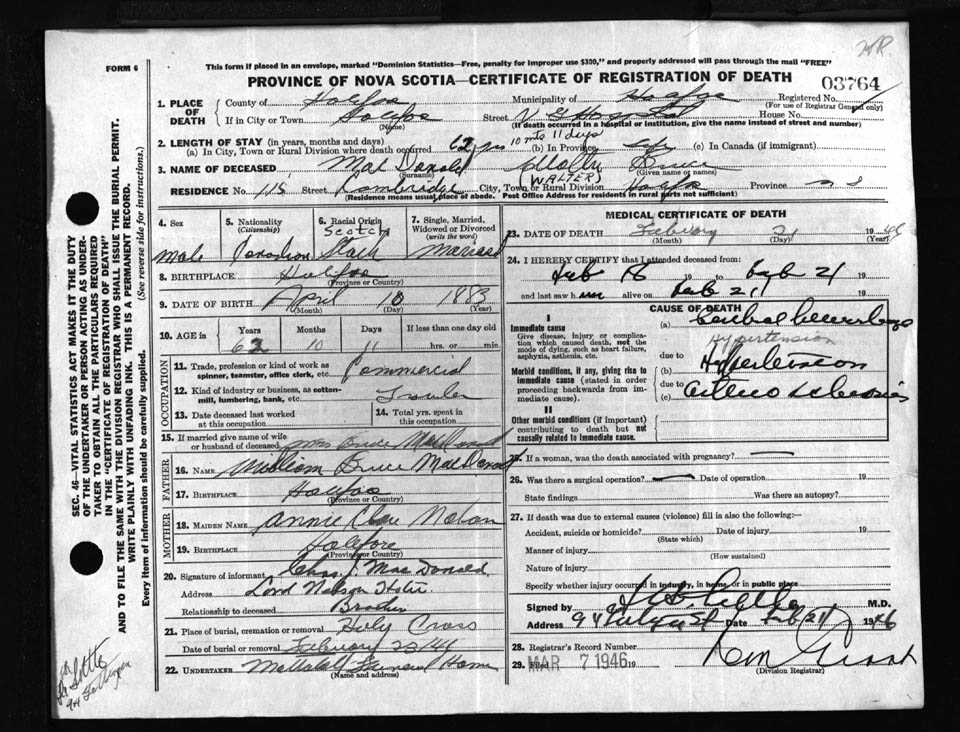 FORM 6
This form if placed in an envelope, marked "Dominion Statistics—Free, penalty for improper use $300," and properly addressed will pass through the mail "FREE"
PROVINCE OF NOVA SCOTIA—CERTIFICATE OF REGISTRATION OF DEATH
03764
1. PLACE OF DEATH
County of Halifax
Municipality of Halifax
Registered No.
(For use of Registrar General only)
If in City or Town Halifax
(Name)
Street V G Hospital
(If death occurred in a hospital or institution, give the name instead of street and number)
2. LENGTH OF STAY (in years, months and days)
(a) In City, Town or Rural Division where death occurred 62 yrs 10 mts 11 days
(b) In Province life
(c) In Canada (if immigrant)
3. NAME OF DECEASED Mac Donald
(Surname)
(WALTER) Bruce
(Given name or names)
RESIDENCE No. 115 Street Cambridge City, Town or Rural Division Halifax Province N S
(Residence means usual place of abode. Post Office Address for residents in rural parts not sufficient)
4. Sex
male
5. Nationality
(Citizenship)
Canadian
6. Racial Origin
Scotch
7. Single, Married, Widowed or Divorced
(write the word)
Married
8. BIRTHPLACE Halifax
(Province or Country)
9. DATE OF BIRTH April 10 1883
(Month) (Day) (Year)
10. AGE in
Years Months Days If less than one day old
62 10 11 hrs. or min.
OCCUPATION
11. Trade, profession or kind of work as spinner, teamster, office clerk, etc. Commercial
12. Kind of industry or business, as cotton-mill, lumbering, bank, etc.
13. Date deceased last worked at this occupation
14. Total yrs. spent in this occupation
15. If married give name of wife or husband of deceased Mrs Bruce MacDonald
FATHER
16. NAME William Bruce MacDonald
17. BIRTHPLACE Halifax
(Province or Country)
MOTHER
18. MAIDEN NAME Annie
19. BIRTHPLACE Halifax
(Province or Country)
20. Signature of informant Chas. J. MacDonald
Address Lord Nelson Hotel
Relationship to deceased Brother
21. Place of burial, cremation or removal Holy Cross
Date of burial or removal February 23/46
22. UNDERTAKER Funeral Home
(Name and address)
MEDICAL CERTIFICATE OF DEATH
23. DATE OF DEATH February 21 1946
(Month) (Day) (Year)
24. I HEREBY CERTIFY that I attended deceased from:
Feb 18 19 to Feb 21 19
and last saw him alive on Feb 21 19
CAUSE OF DEATH
I
Immediate cause
Give disease, injury or complication which caused death, not the mode of dying, such as heart failure, asphyxia, asthenia, etc.
(a) Cerebral Hemorrhage
Hypertension
due to
Morbid conditions, if any, giving rise to immediate cause (stated in order proceeding backwards from immediate cause).
(b) Hypertension
due to
(c) Arterio Sclerosis
II
Other morbid conditions (if important) contributing to death but not causally related to immediate cause.
25. If a woman, was the death associated with pregnancy? —
26. Was there a surgical operation? — Date of operation 19
State findings Was there an autopsy?
27. If death was due to external causes (violence) fill in also the following:—
Accident, suicide or homicide? Date of injury 19
(State which)
Manner of injury
(How sustained)
Nature of injury
Specify whether injury occurred in industry, in home, or in public place
Signed by M.D.
Address Date Feb 21 1946
28. Registrar's Record Number
29. Filed MAR 7 1946 19
(Division Registrar)
SEC. 46—VITAL STATISTICS ACT MAKES IT THE DUTY OF THE UNDERTAKER OR PERSON ACTING AS UNDERTAKER TO OBTAIN ALL THE PARTICULARS REQUIRED IN THE "CERTIFICATE OF REGISTRATION OF DEATH" AND TO FILE THE SAME WITH THE DIVISION REGISTRAR WHO SHALL ISSUE THE BURIAL PERMIT.
WRITE PLAINLY WITH UNFADING INK. THIS IS A PERMANENT RECORD.
Every item of information should be carefully supplied. (See reverse side for instructions.)